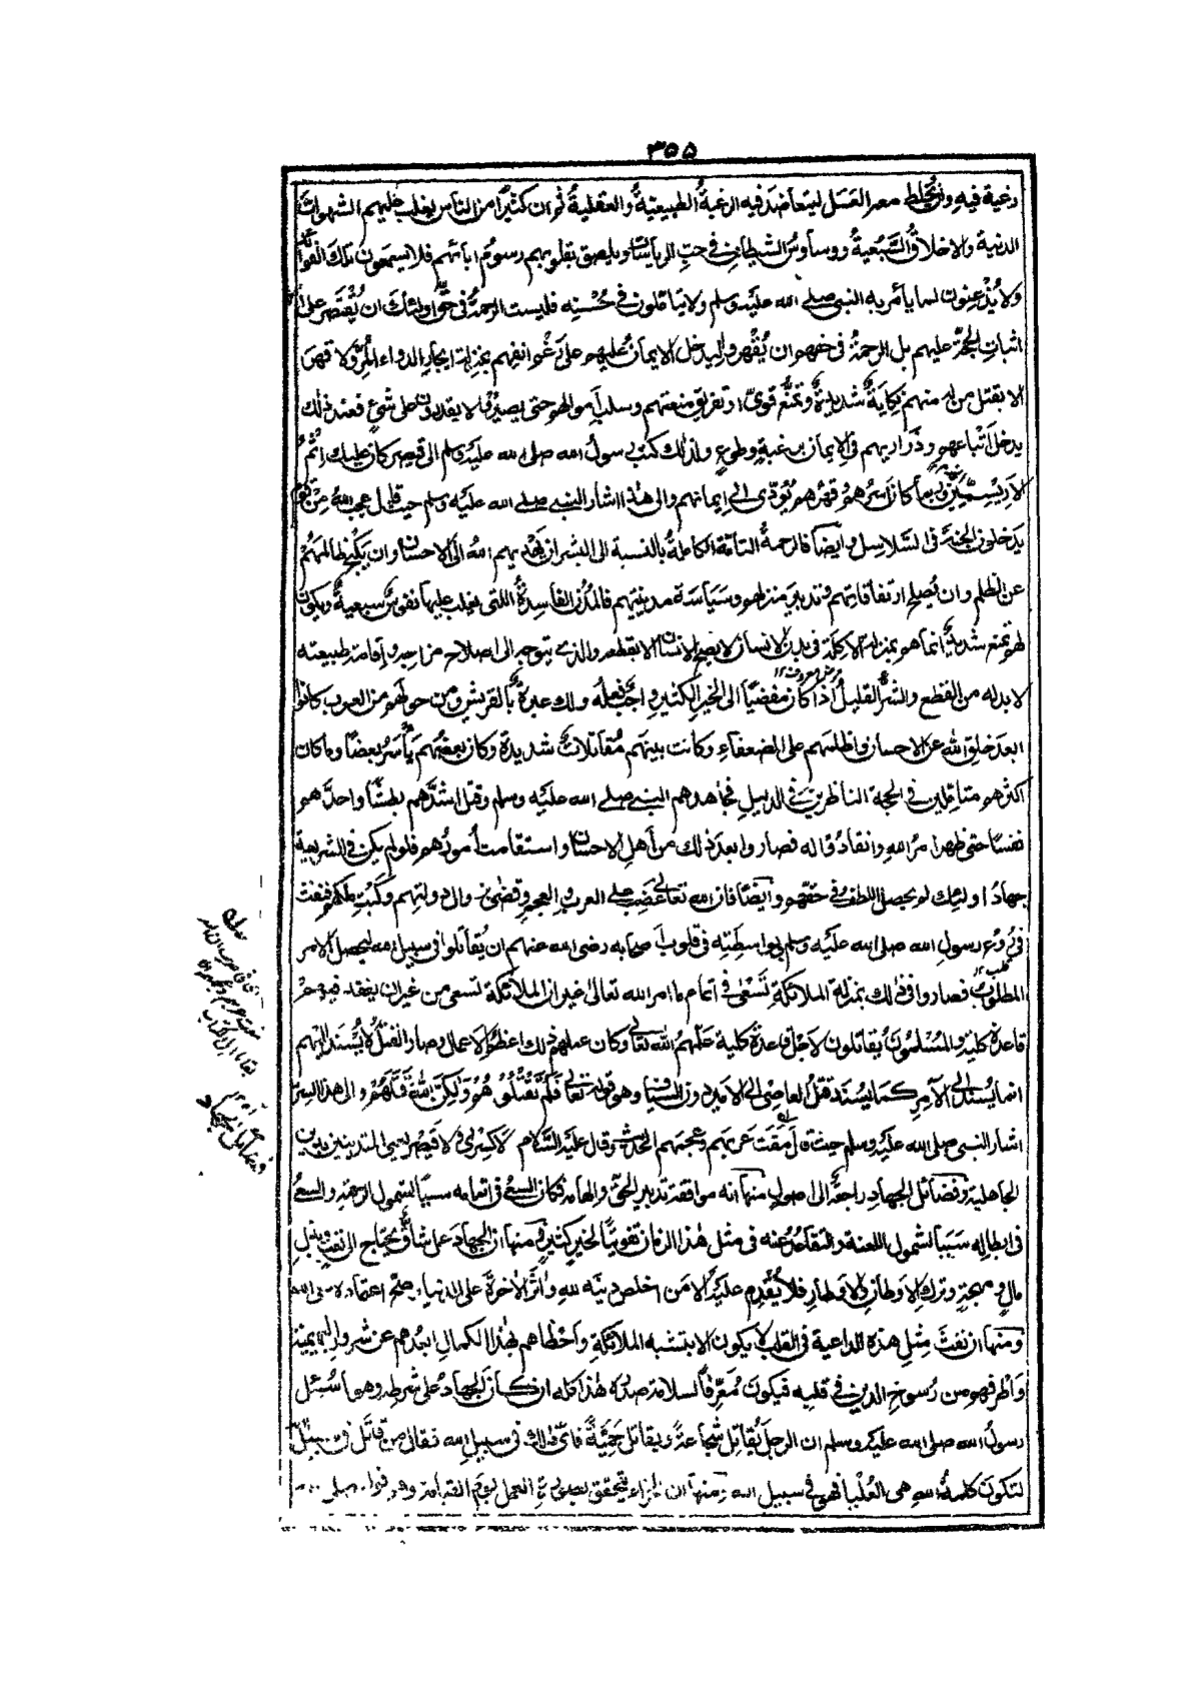 ٣٥٥
رغبة فيه وان يخلط معه العسل ليتعاضد فيه الرغبةُ الطبيعيةُ والعقليةُ ثم ان كثيرًا من الناس يغلب عليهم الشهوات
الدنية والاخلاقُ السَّبَعيةُ ووساوسُ الشيطان في حب الرياسات ويلصق بقلوبهم رسومُ اٰبائهم فلا يسمعون تلك الفوائد
ولا يُذْعِنون لما يأمر به النبي صلى الله عليه وسلم ولا يتأملون في حُسْنه فليست الرحمةُ في حقِّ اولئك ان يُقتَصر على
اثباتِ الحجة عليهم بل الرحمةُ في حقهم ان يُقْهروا ليدخل الايمانُ عليهم على رغم انفهم بمنزلة ايجارِ الدواء المُرّ ولا قهرَ
الا بقتل من له منهم نكايةٌ شديدةٌ وتمنُّعٌ قويٌّ او تفريقِ منعتهم وسلبِ اموالهم حتى يصيروا لا يقدرون على شيءٍ فعند ذلك
يدخل اتباعهم وذَرَاريهم في الايمان برغبةٍ وطوعٍ ولذلك كتب رسولُ الله صلى الله عليه وسلم الى قيصر كان عليك اثمُ
الاَرِيْسِيِّيْنَ وربما كان اسرُهم وقهرُهم يُؤدِّي الى ايمانهم والى هٰذا اشار النبي صلى الله عليه وسلم حيث قال عجب اللهُ من قوم
يدخلون الجنةَ في السَّلاسِل وايضًا فالرحمةُ التامّة الكاملةُ بالنسبة الى البشر ان يَهديهم اللهُ الى الاحسان وان يكبح ظالمهم
عن الظلم وان يُصلح ارتفاقاتهم وتدبيرَ منزلهم وسياسة مدينتهم فالمُدُنُ الفاسِدةُ اللتي يغلب عليها نفوسٌ سبعيةٌ ويكون
لهم تمنّع شديدٌ انما هو بمنزلة الأكِلة في بدن الانسان لا يصح الانسانُ الا بقطعه والذي يتوجه الى اصلاح مزاجه واقامةِ طبيعته
لا بد له من القطع والشرُّ القليلُ اذا كان مفضيًا الى الخيرِ الكثير واجبٌ فعلُه ولك عبرةٌ بالقريش ومن حولهم من العرب كانوا
ابعدَ خلقِ الله عن الاحسان واظلمهم على الضعفاءِ وكانت بينهم مُقاتلاتٌ شديدةٌ وكان بعضُهم يأسر بعضًا وما كان
اكثرهم متأملين في الحجة الناظرين في الدليل فجاهدهم النبي صلى الله عليه وسلم وقتل اشدَّهم بطشًا واحدَّهم
نفسًا حتى ظهر امرُ الله وانقادوا له فصاروا بعد ذلك من اهلِ الاحسان واستقامت اُمورُهم فلو لم يكن في الشريعة
جهادُ اولئك لم يحصل اللطفُ في حقهم وايضًا فان الله تعالى غَضِبَ على العرب والعجم وقضى بزوال دولتهم وكَبْتِ ملكهم فنفث
في رُوعِ رسولِ الله صلى الله عليه وسلم وبواسِطتِه في قلوب اصحابه رضى الله عنهم ان يُقاتلوا في سبيل الله ليحصل الامر
المطلوب فصاروا في ذلك بمنزلة الملائكةِ تَسْعٰى في اتمام ما امر الله تعالى غير ان الملائكة تسعى من غير ان يعقد فيهم
قاعدة كلية والمُسْلمون يُقاتلون لاجل قاعدة كلية علَّمهم الله تعالى وكان عملهم ذلك اعظمَ الاعمال وصار القتلُ لا يُسْنَد اليهم
انما يُسند الى الآمِرِ كما يُسندُ قتلُ العاصي الى الامير دون السيّاف وهو قوله تعالى فَلَمْ تَقْتُلُوْهُمْ وَلٰكِنَّ اللهَ قَتَلَهُمْ والى هذا السِرّ
اشار النبي صلى الله عليه وسلم حيث قال مَقَتَ عربهم وعجمهم الحديث وقال عليه السَّلام لا كِسْرٰى ولا قيصر يعنى المتدينين بدين
الجاهلية وفضائل الجهاد راجعةٌ الى اصولٍ منها انه موافقةُ تدبير الحق والهامه فكان السعيُ في اتمامه سببًا لشمول الرحمة والسعيُ
في ابطاله سَبَبًا لشمول اللعنة والتقاعدُ عنه في مثل هٰذا الزمان تفويتًا لخيرٍ كثيرٍ ومنها ان الجهادَ عملٌ شاقٌّ يحتاج الى تعبٍ وبذلِ
مالٍ ومهجةٍ وتركِ الاوطان والاوطارِ فلا يُقدِم عليه الا من اخلص دينَه للهِ واٰثر الاٰخرةَ على الدنيا وصح اعتماده على الله
ومنها ان نفثَ مِثلِ هذه الداعية في القلب لا يكون الا بتشبه الملائكةِ واَحْظاهم بهٰذا الكمالِ ابعدُهم عن شرور البهيمية
واَطرفهم من رُسوخِ الدين في قلبه فيكون مُعرِّفًا لسلامة صدرِه هٰذا كله ان كان الجهادُ على شرطه وهو ما سُئل
رسولُ الله صلى الله عليه وسلم ان الرجلَ يُقاتِل شجاعةً ويقاتل حَمِيَّةً فاىُّ ذٰلك في سبيلِ الله فقال من قاتل
لتكونَ كلمةُ الله هي العُلْيا فهو في سبيل الله ومنها ان الجزاء يتحقق بصورةِ العمل يومَ القيامة وهو قوله صلى